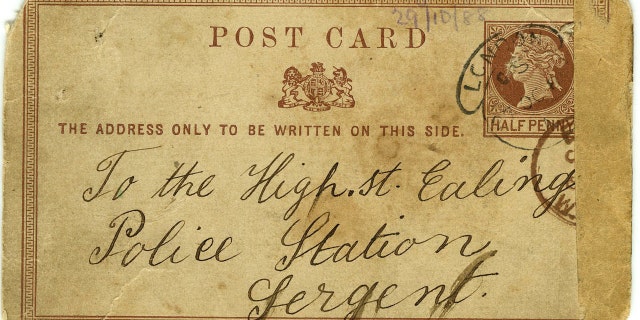 29/10/88
POST CARD
LOND
THE ADDRESS ONLY TO BE WRITTEN ON THIS SIDE.
HALF PENNY
To the High.st. Ealing
Police Station
Sergent.